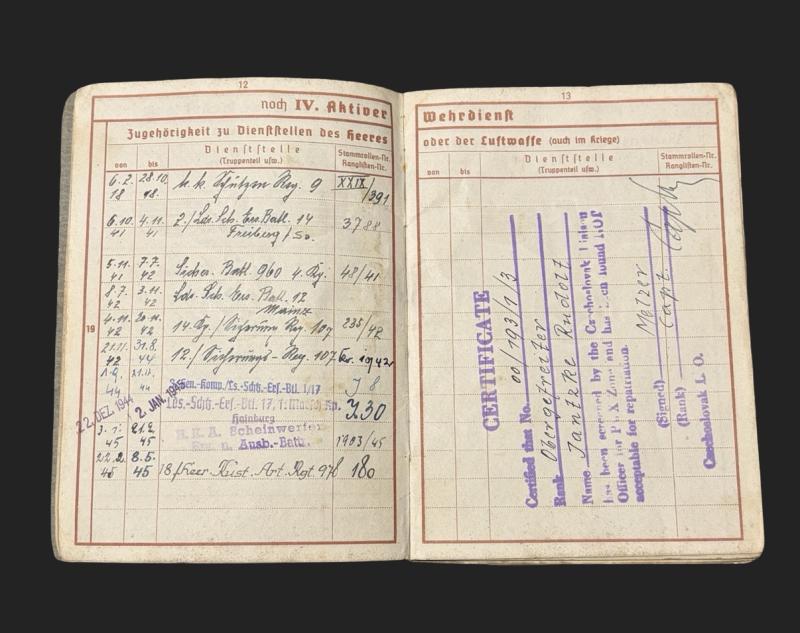 12
noch IV. Aktiver
Zugehörigkeit zu Dienststellen des Heeres
von
bis
Dienststelle
(Truppenteil usw.)
Stammrollen-Nr.
Ranglisten-Nr.
6.2. 28.10. k.k. Schützen Reg. 9 XXIX/391
18 18.
6.10. 4.11. 2./Lds. Sch. Ers. Batl. 14 3788
41 41 Freiberg/Sa.
5.11. 7.7. Sicher. Batl 960 4. Kp. 48/41
41 42
8.7. 3.11. Lds. Sch. Ers. Batl. 12
42 42 Mainz
19
4.11. 20.11. 14. Kp./Sicherung Reg. 107 235/42
42 42
21.11. 31.8. 12./Sicherungs-Reg. 107
42 44
44 44 Genen.-Komp./Ls.-Schtz.-Ers.-Btl. I/17 J 8
22. DEZ. 1944 2. JAN. 1945 Lds.-Schtz.-Ers.-Btl. 17, 1. Kp. J.30
Hainburg
3.1. 21.2. Scheinwerfer
45 45 Ers. u. Ausb.-Battr. 1903/45
22.2. 8.5.
45 45 18./Heer. Küst. Art. Rgt. 978 180
13
Wehrdienst
oder der Luftwaffe (auch im Kriege)
von
bis
Dienststelle
(Truppenteil usw.)
Stammrollen-Nr.
Ranglisten-Nr.
CERTIFICATE
Certified that No. 00/193/1/3
Rank Obergefreiter
Name Jantzke Rudolf
has been screened by the Czechoslovak Liaison
Officer for P.W.X Zone and has been found NOT
acceptable for repatriation.
(Signed) Melzer
(Rank) Capt.
Czechoslovak L. O.